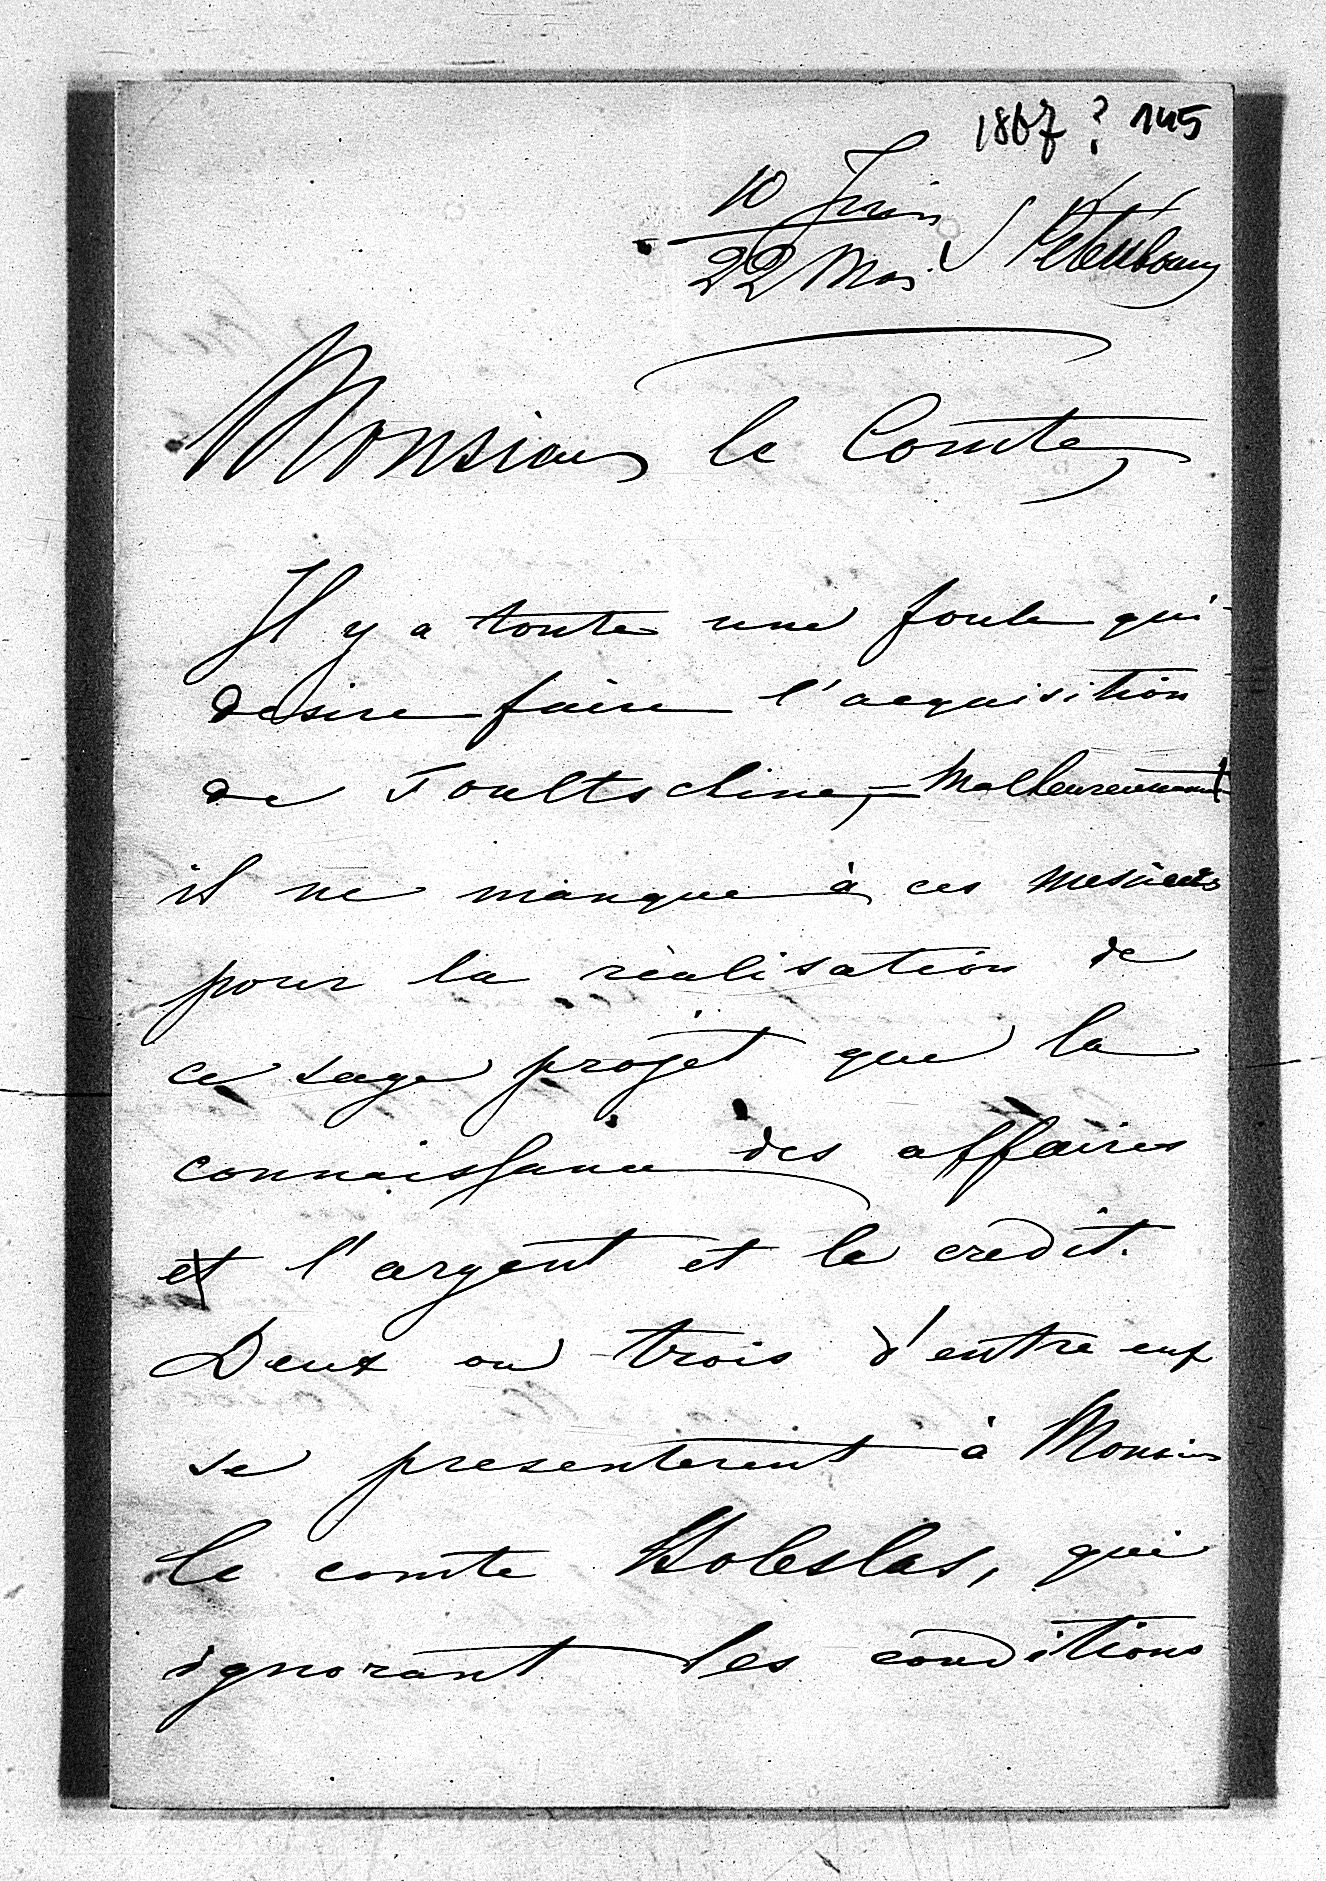 1867 ? 145
10 Juin
22 Mai S Petersbourg
Monsieur le Comte,
Il y a toute une foule qui
desire faire l'acquisition
de Toultschine, — Malheureusement
il ne manque à ces messieurs
pour la réalisation de
ce sage projet que la
connaissance des affaires
et l'argent et le credit.
Deux ou trois d'entre eux
se presenterent à Monsieur
le comte Boleslas, qui
ignorant les conditions